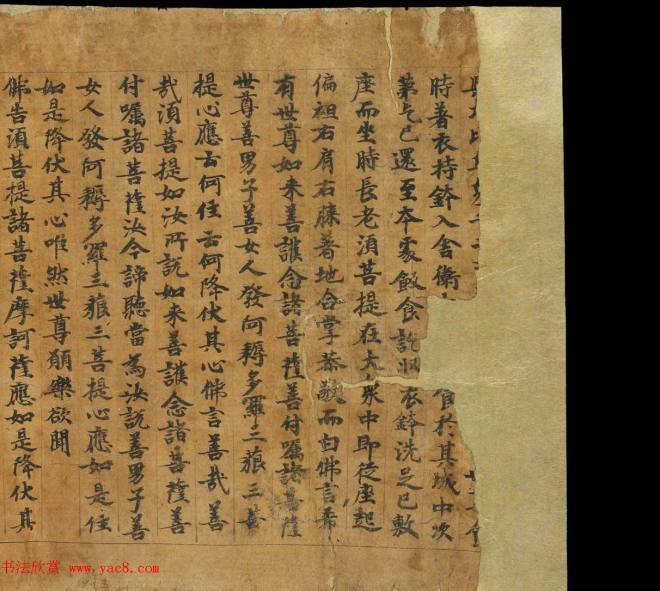 時著衣持鉢入舍衛 食於其城中次
第乞已還至本處飯食訖収衣鉢洗足已敷
座而坐時長老湏菩提在大衆中即従座起
偏袒右肩右膝著地合掌恭敬而白佛言希
有世尊如来善護念諸菩薩善付嘱諸菩薩
世尊善男子善女人發阿耨多羅三藐三菩
提心應云何住云何降伏其心佛言善哉善
哉湏菩提如汝所說如来善護念諸菩薩善
付嘱諸菩薩汝今諦聽當為汝說善男子善
女人發阿耨多羅三藐三菩提心應如是住
如是降伏其心唯然世尊願樂欲聞
佛告湏菩提諸菩薩摩訶薩應如是降伏其
书法欣赏 www.yac8.com